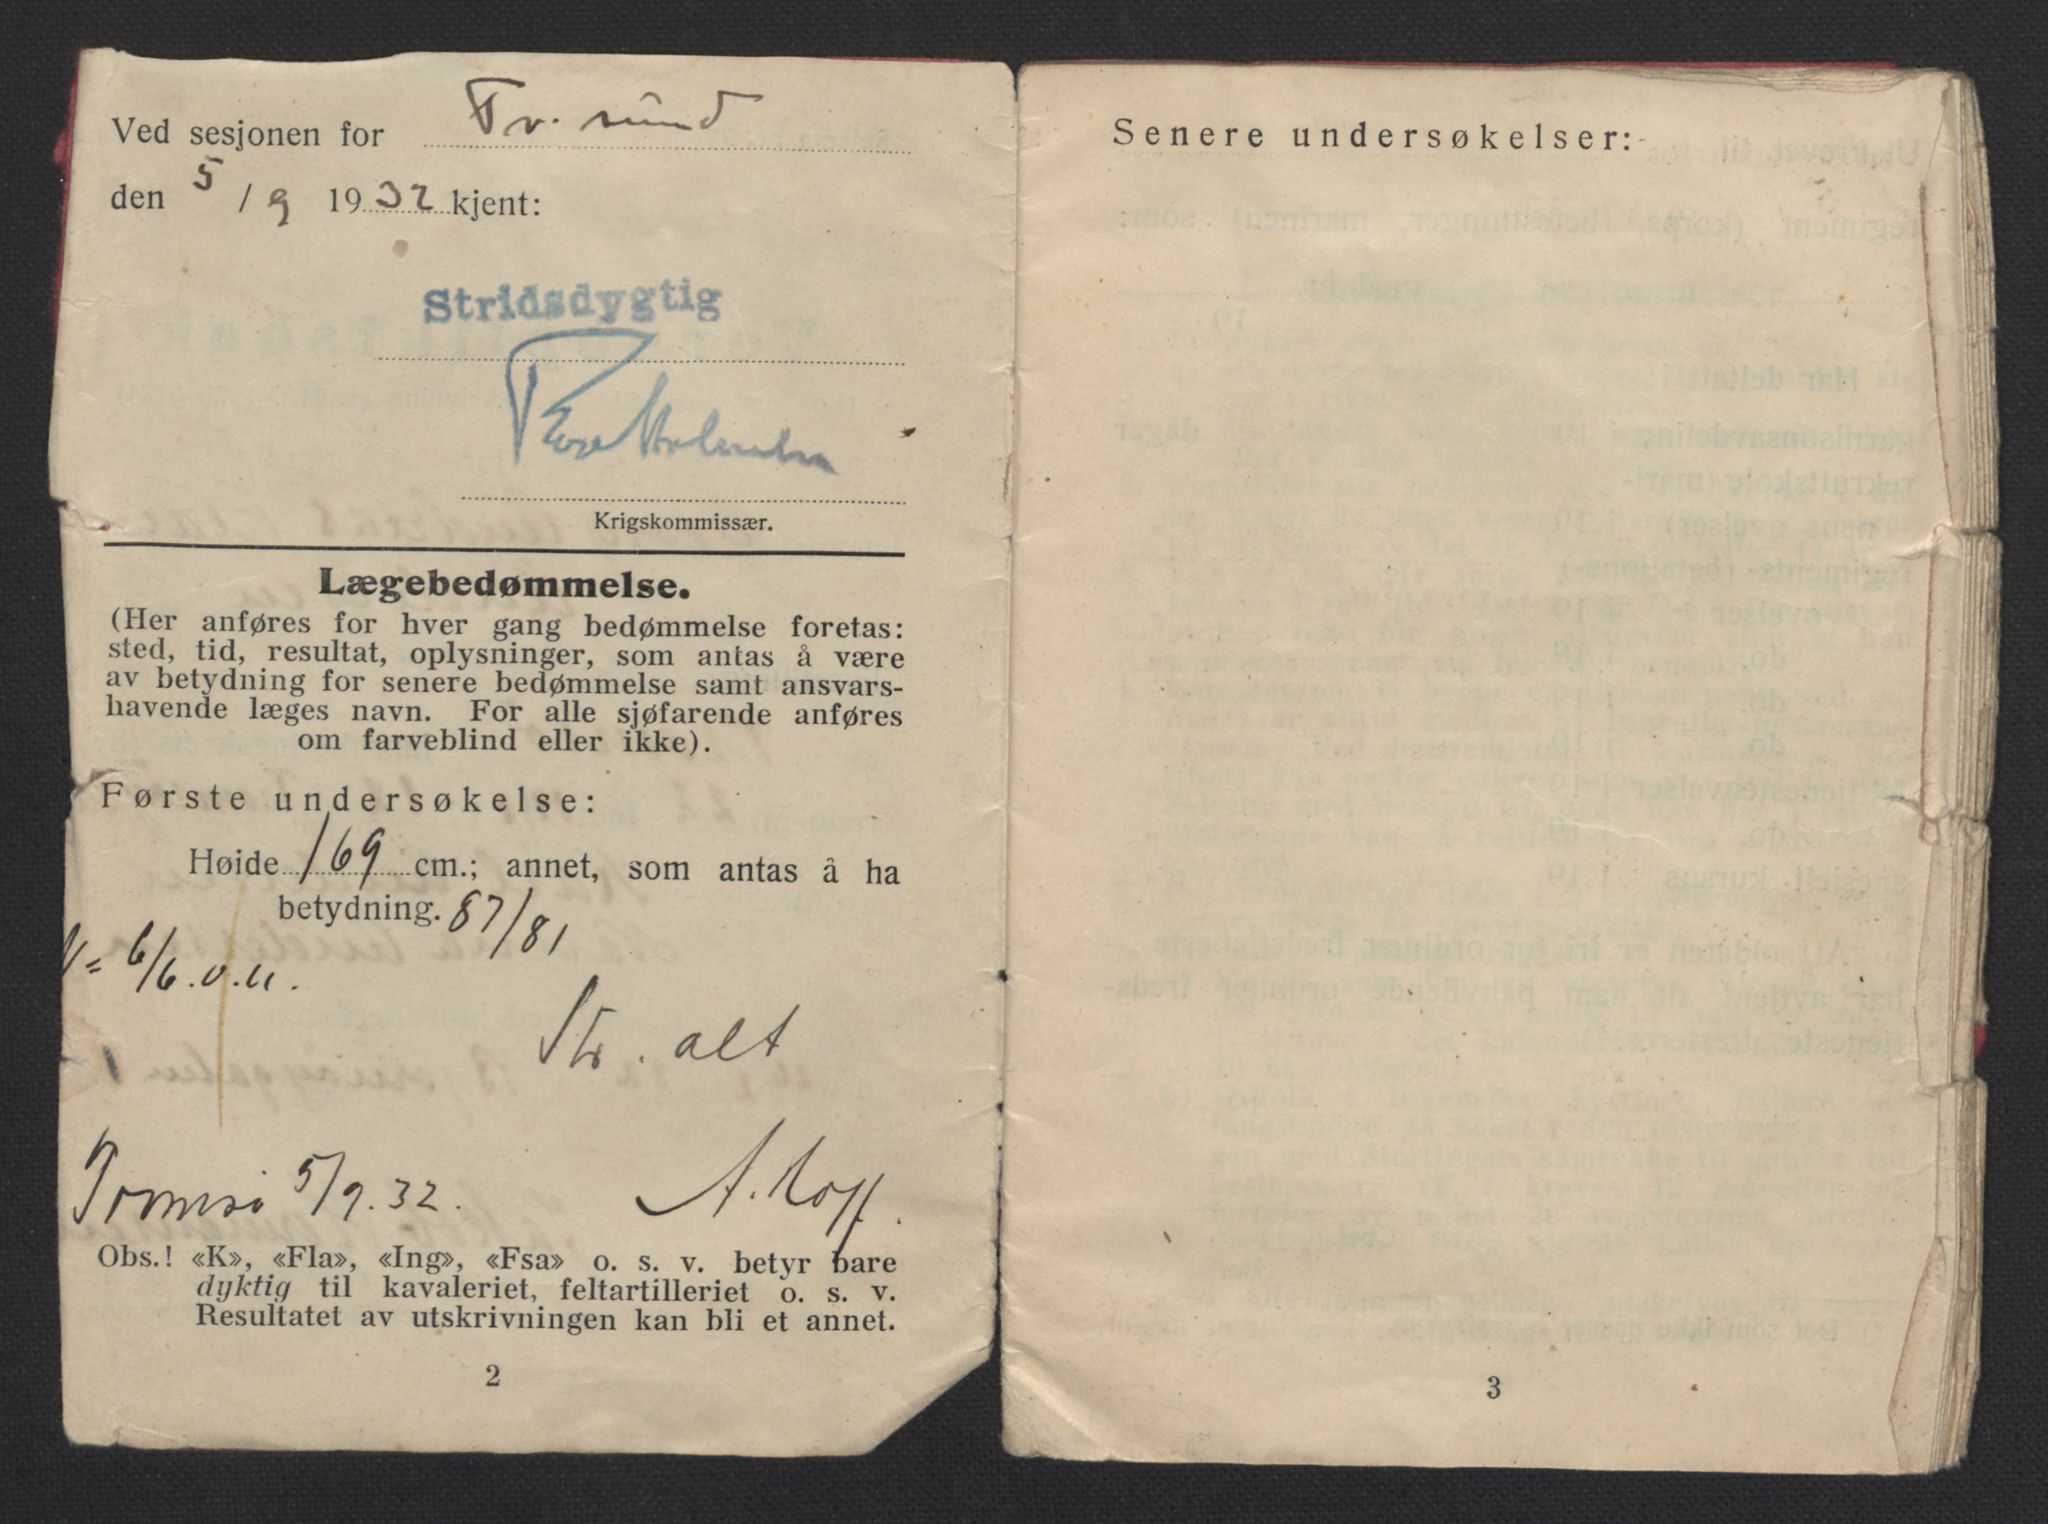 Ved sesjonen for Tr. sund
den 5 / 9 1932 kjent:
Stridsdygtig
Krigskommissær.
Lægebedømmelse.
(Her anføres for hver gang bedømmelse foretas:
sted, tid, resultat, oplysninger, som antas å være
av betydning for senere bedømmelse samt ansvars-
havende læges navn. For alle sjøfarende anføres
om farveblind eller ikke).
Første undersøkelse:
Høide 169 cm.; annet, som antas å ha
betydning. 87/81
V = 6/6. o. u.
Str. alt
Tromsø 5/9. 32. A. Hoff.
Obs.! «K», «Fla», «Ing», «Fsa» o. s. v. betyr bare
dyktig til kavaleriet, feltartilleriet o. s. v.
Resultatet av utskrivningen kan bli et annet.
2
Senere undersøkelser:
3